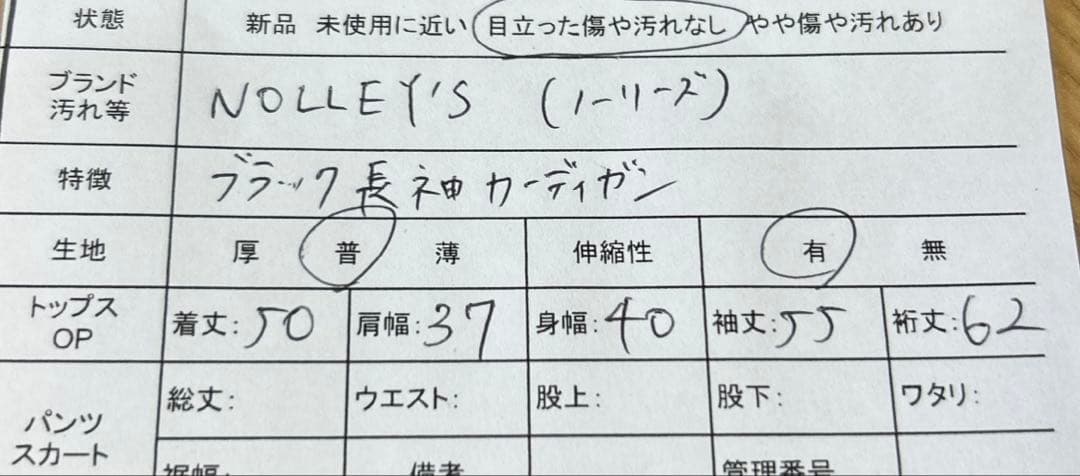 状態 新品 未使用に近い 目立った傷や汚れなし やや傷や汚れあり
ブランド
汚れ等 NOLLEY'S (ノーリーズ)
特徴 ブラック 長袖 カーディガン
生地 厚 普 薄 伸縮性 有 無
トップス
OP 着丈:50 肩幅:37 身幅:40 袖丈:55 裄丈:62
パンツ
スカート 総丈: ウエスト: 股上: 股下: ワタリ:
裾幅: 備考 管理番号